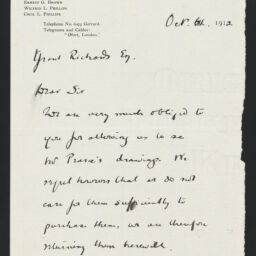 Ernest G. Brown
Wilfrid L. Phillips
Cecil L. Phillips
Telephone No. 6493 Gerrard.
Telegrams and Cables:
Oct. 8th. 1912
Grant Richards Eq.
Dear Sir
We are very much obliged to
you for allowing us to see
Mr drawings. We
regret however that we do not
care for them sufficiently to
purchase them, we are therefore
returning them herewith.